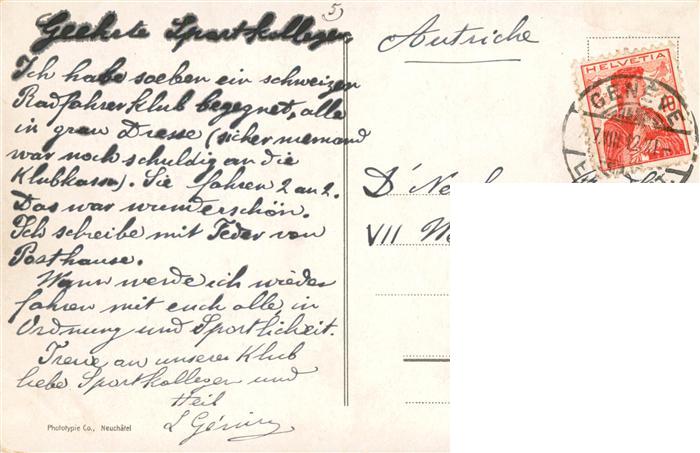 5)
Geehrte Sportkollegen,
Ich habe soeben ein schweizer
Radfahrer Klub begegnet, alle
in grau Dresse (sicher niemand
war noch schuldig an die
Klubkassa). Sie fahren 2 an 2.
Das war wunderschön.
Ich schreibe mit Feder von
Posthause.
Wann werde ich wieder
fahren mit euch alle, in
Ordnung und Sportlicheit.
Treue an unserer Klub
liebe Sportkollegen und
Heil
Phototypie Co., Neuchâtel
Autriche
HELVETIA
GENÈVE
VII